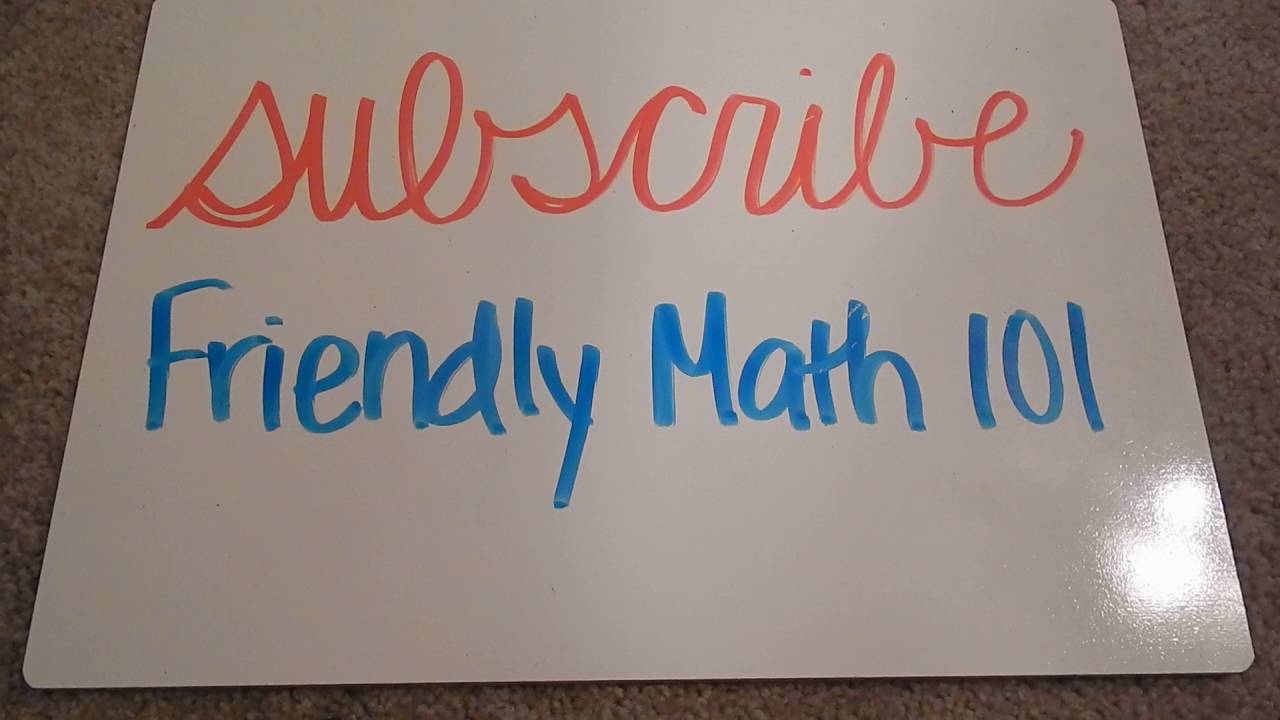 subscribe
Friendly Math 101